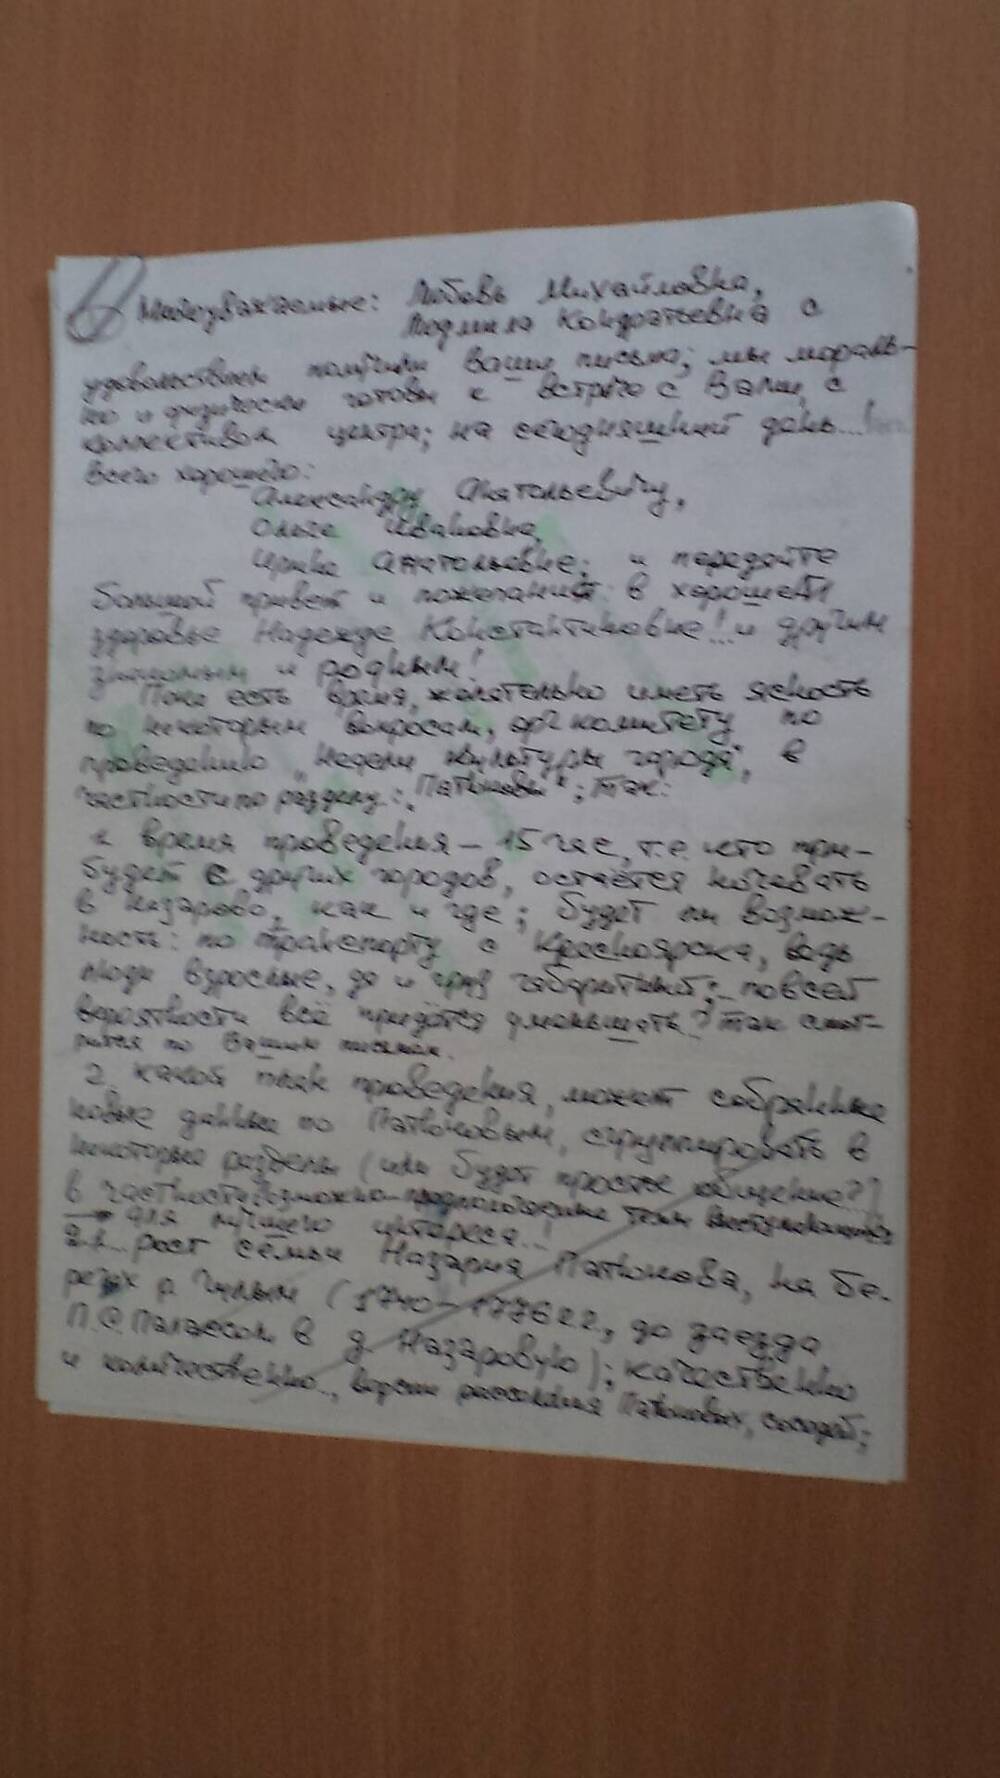 Многоуважаемые: Любовь Михайловна,
Людмила Кондратьевна с
удовольствием получили Ваши письма; мы мораль-
но и физически готовы к встрече с Вами, с
коллективом центра; на сегодняшний день...!
Всего хорошего:
Александру Анатольевичу,
Ольге Ивановне,
Ирине Анатольевне; и передайте
большой привет и пожелания: в хорошем
здоровье Надежде Константиновне!.. и другим
знакомым и родным!
Пока есть время, желательно иметь ясность
по некоторым вопросам, оргкомитету по
проведению „Недели культуры города", в
частности по разделу: „Патюковы"; так:
1. время проведения – 15 час, т.е. кто при-
будет с других городов, остаётся ночевать
в Назарово, как и где; будет ли возмож-
ность: по транспорту с Красноярска, ведь
люди взрослые, да и груз габаритный; – по всей
вероятности всё придётся уменьшать? Так смот-
рится по Вашим письмам.
2. какой план проведения, может собранные
новые данные по Патюковым, сгруппировать в
некоторые разделы (или будет простое общение??)
в частности, возможно–предполагаемые темы выступающих
→ для лучшего интереса..!
2.1... рост семьи Назария Патюкова, на бе-
регах р. Чулым (1740–1776 гг., до заезда
П.С. Палласом в д. Назаровую); качественно
и количественно.., версии расселения Патюковых, соседей;